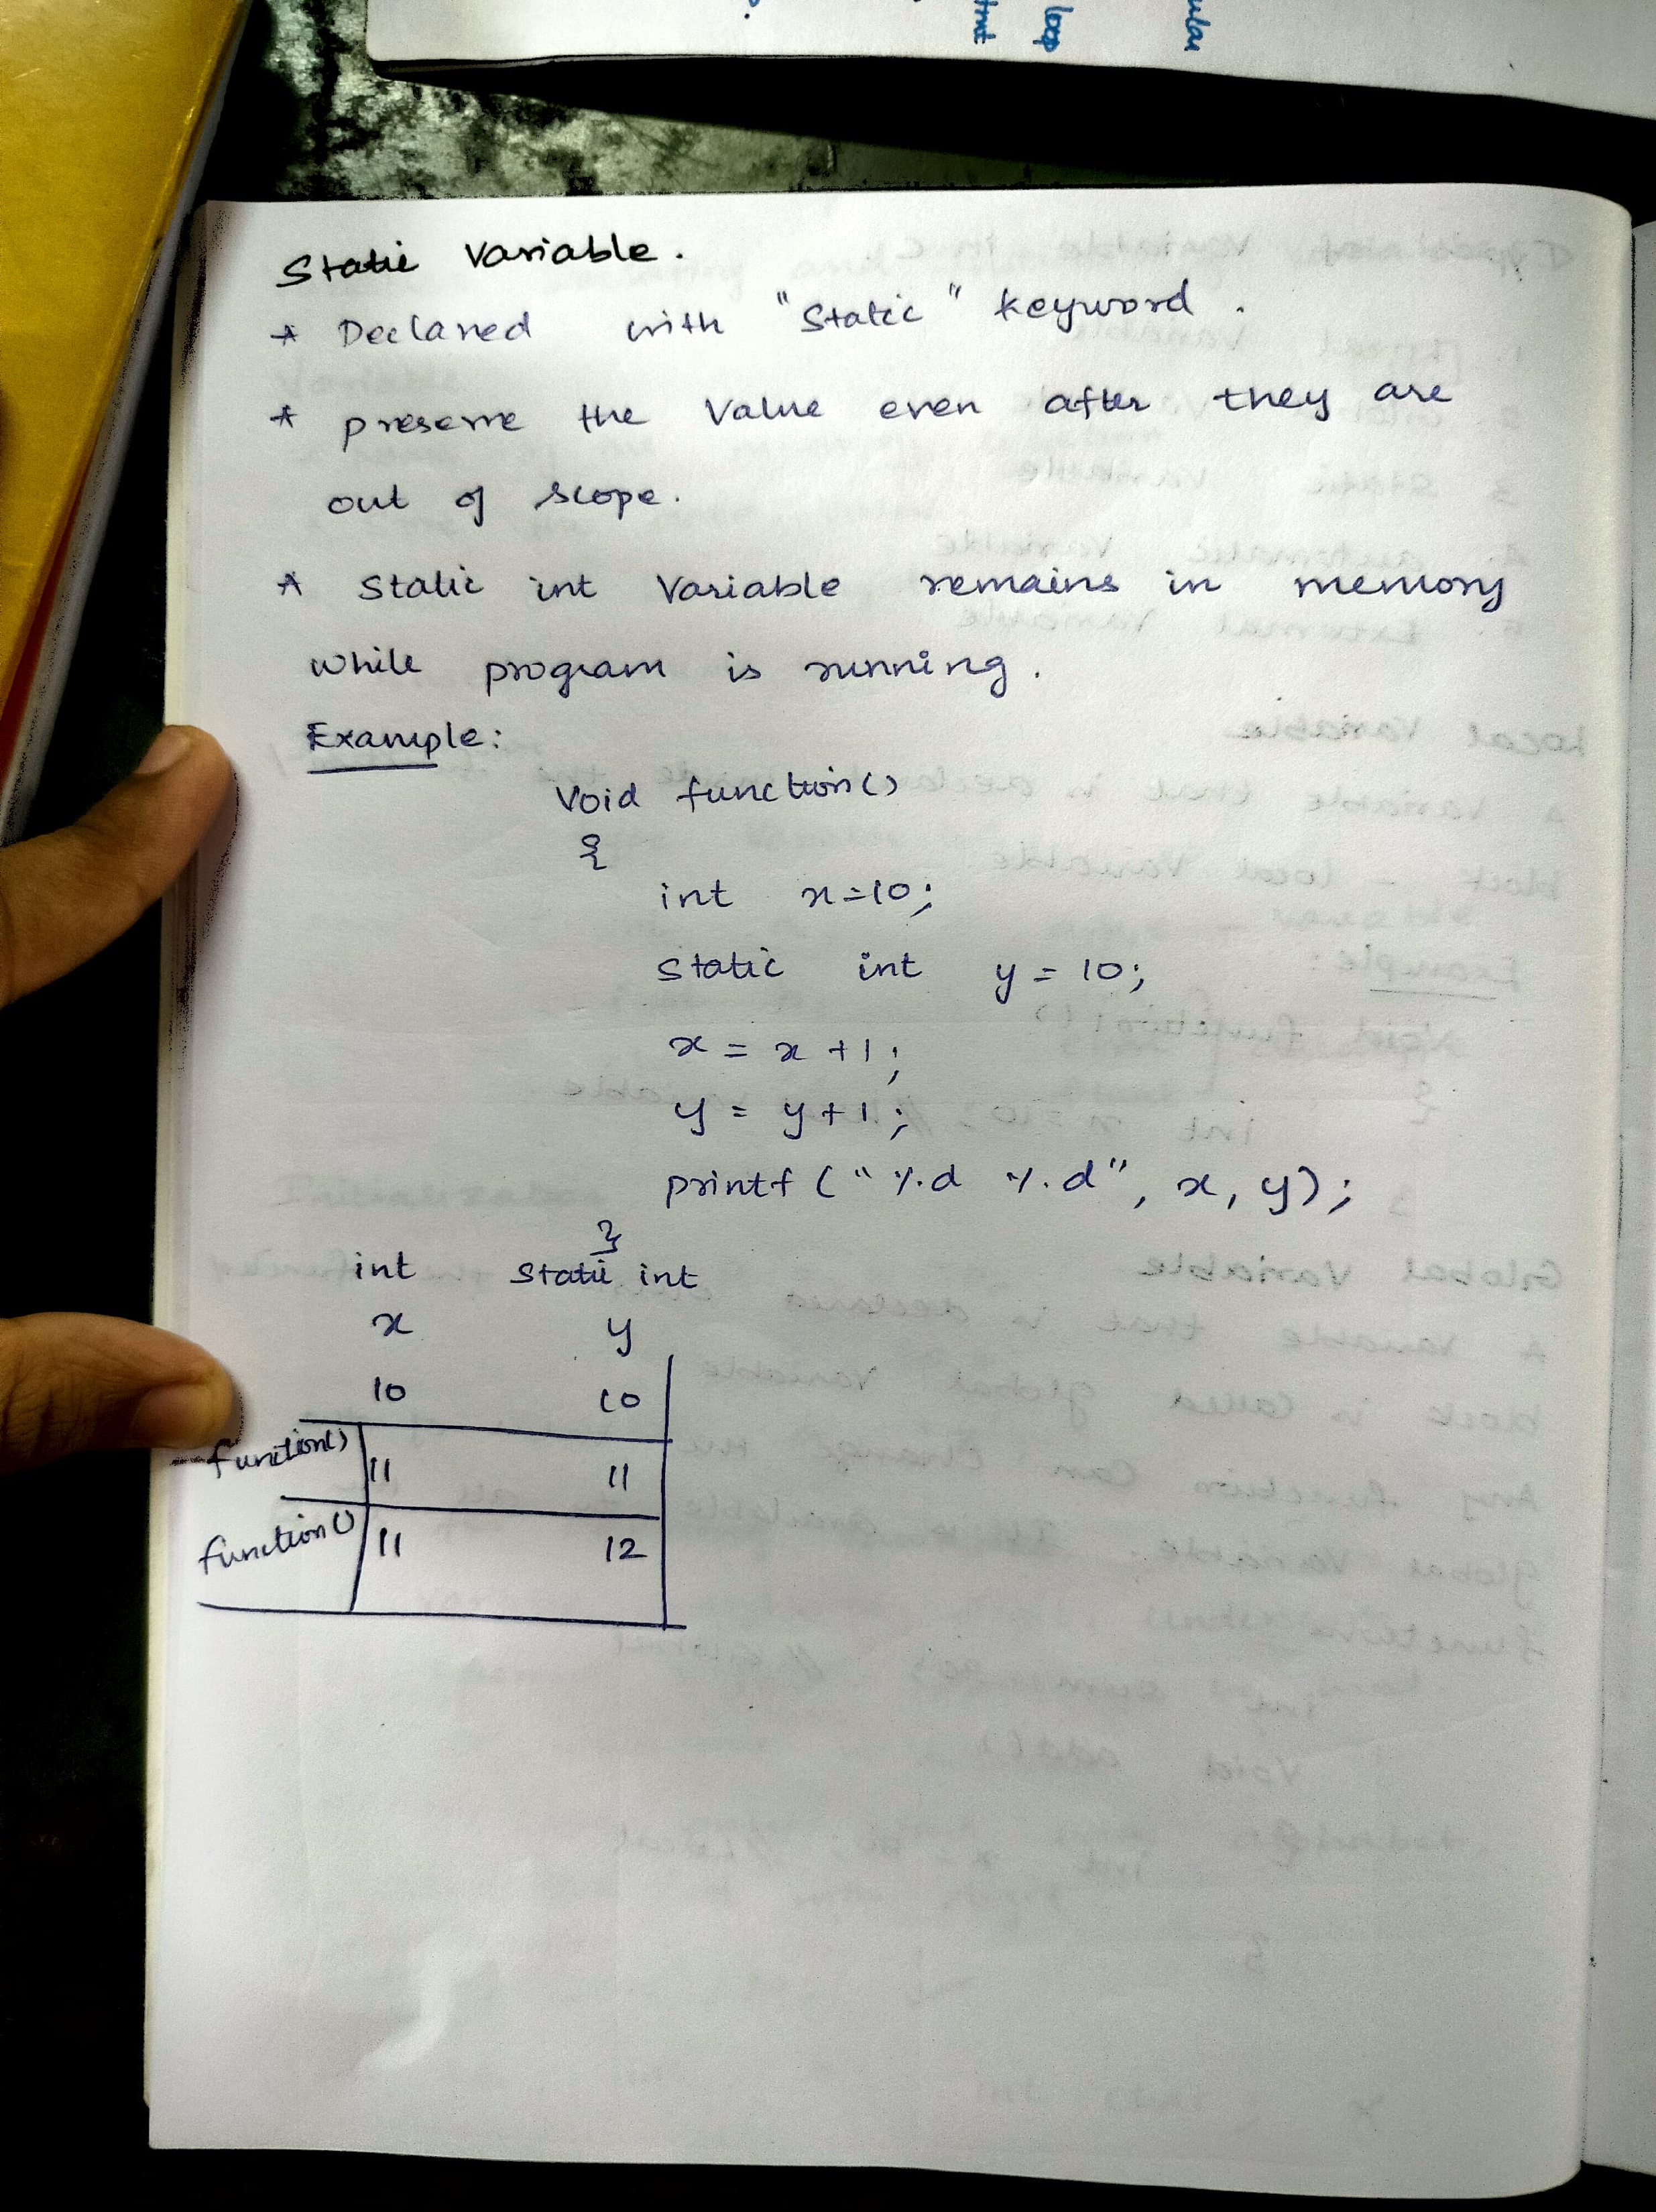 ular
loop
tmt
Static Variable.
* Declared with "Static" keyword.
* preserve the Value even after they are
out of scope.
* Static int Variable remains in memory
while program is running.
Example:
Void function()
{
int x=10;
static int y = 10;
x = x +1;
y = y+1;
printf ("%d %d", x, y);
}
int static int
x y
10 10
function() 11 11
function() 11 12